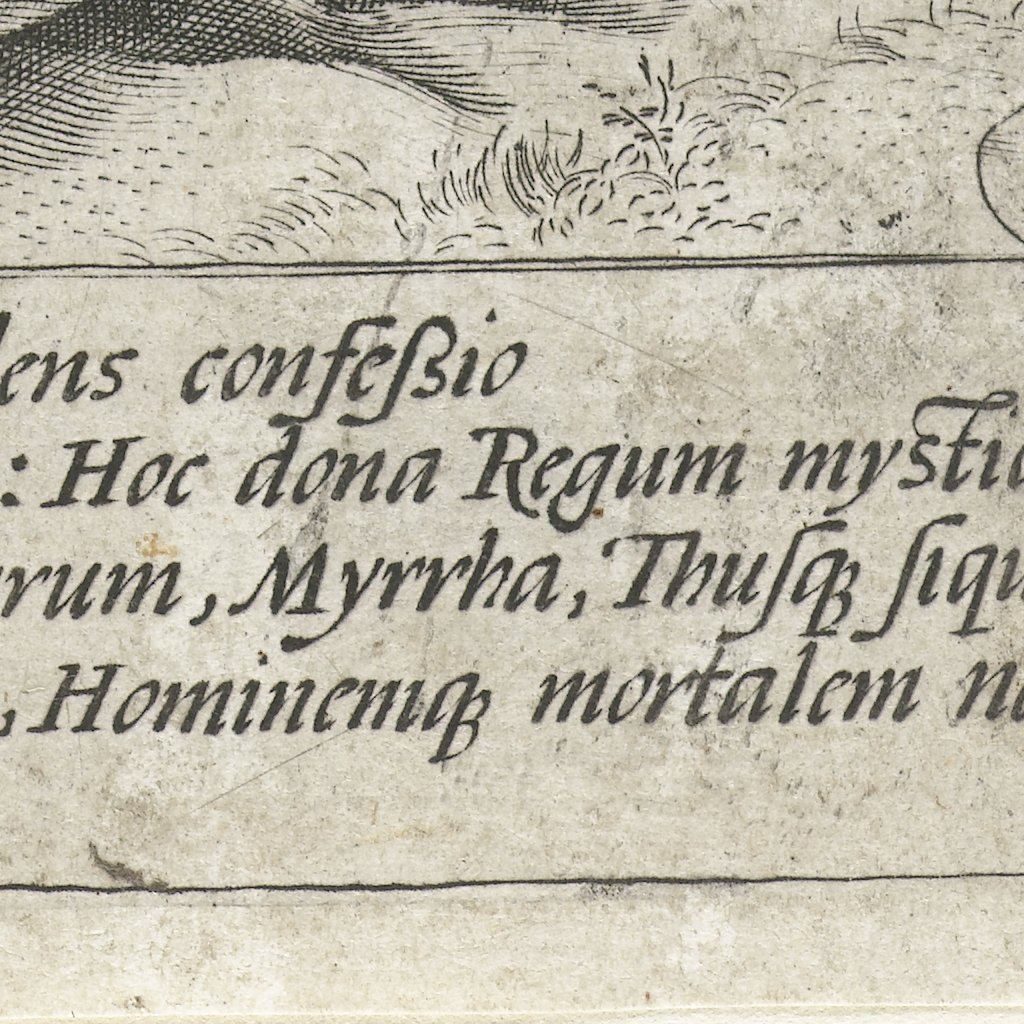 lens confeßio
: Hoc dona Regum mysti
rum, Myrrha, Thusq₃ siqu
, Hominemq₃ mortalem n